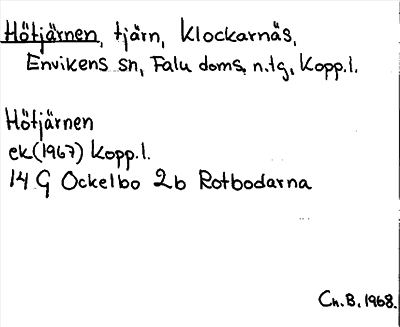 Hötjärnen, tjärn, Klockarnäs,
Envikens sn, Falu doms. n.tg, Kopp.l.
Hötjärnen
ek(1967) Kopp.l.
14 G Ockelbo 2b Rotbodarna
Ch.B. 1968.